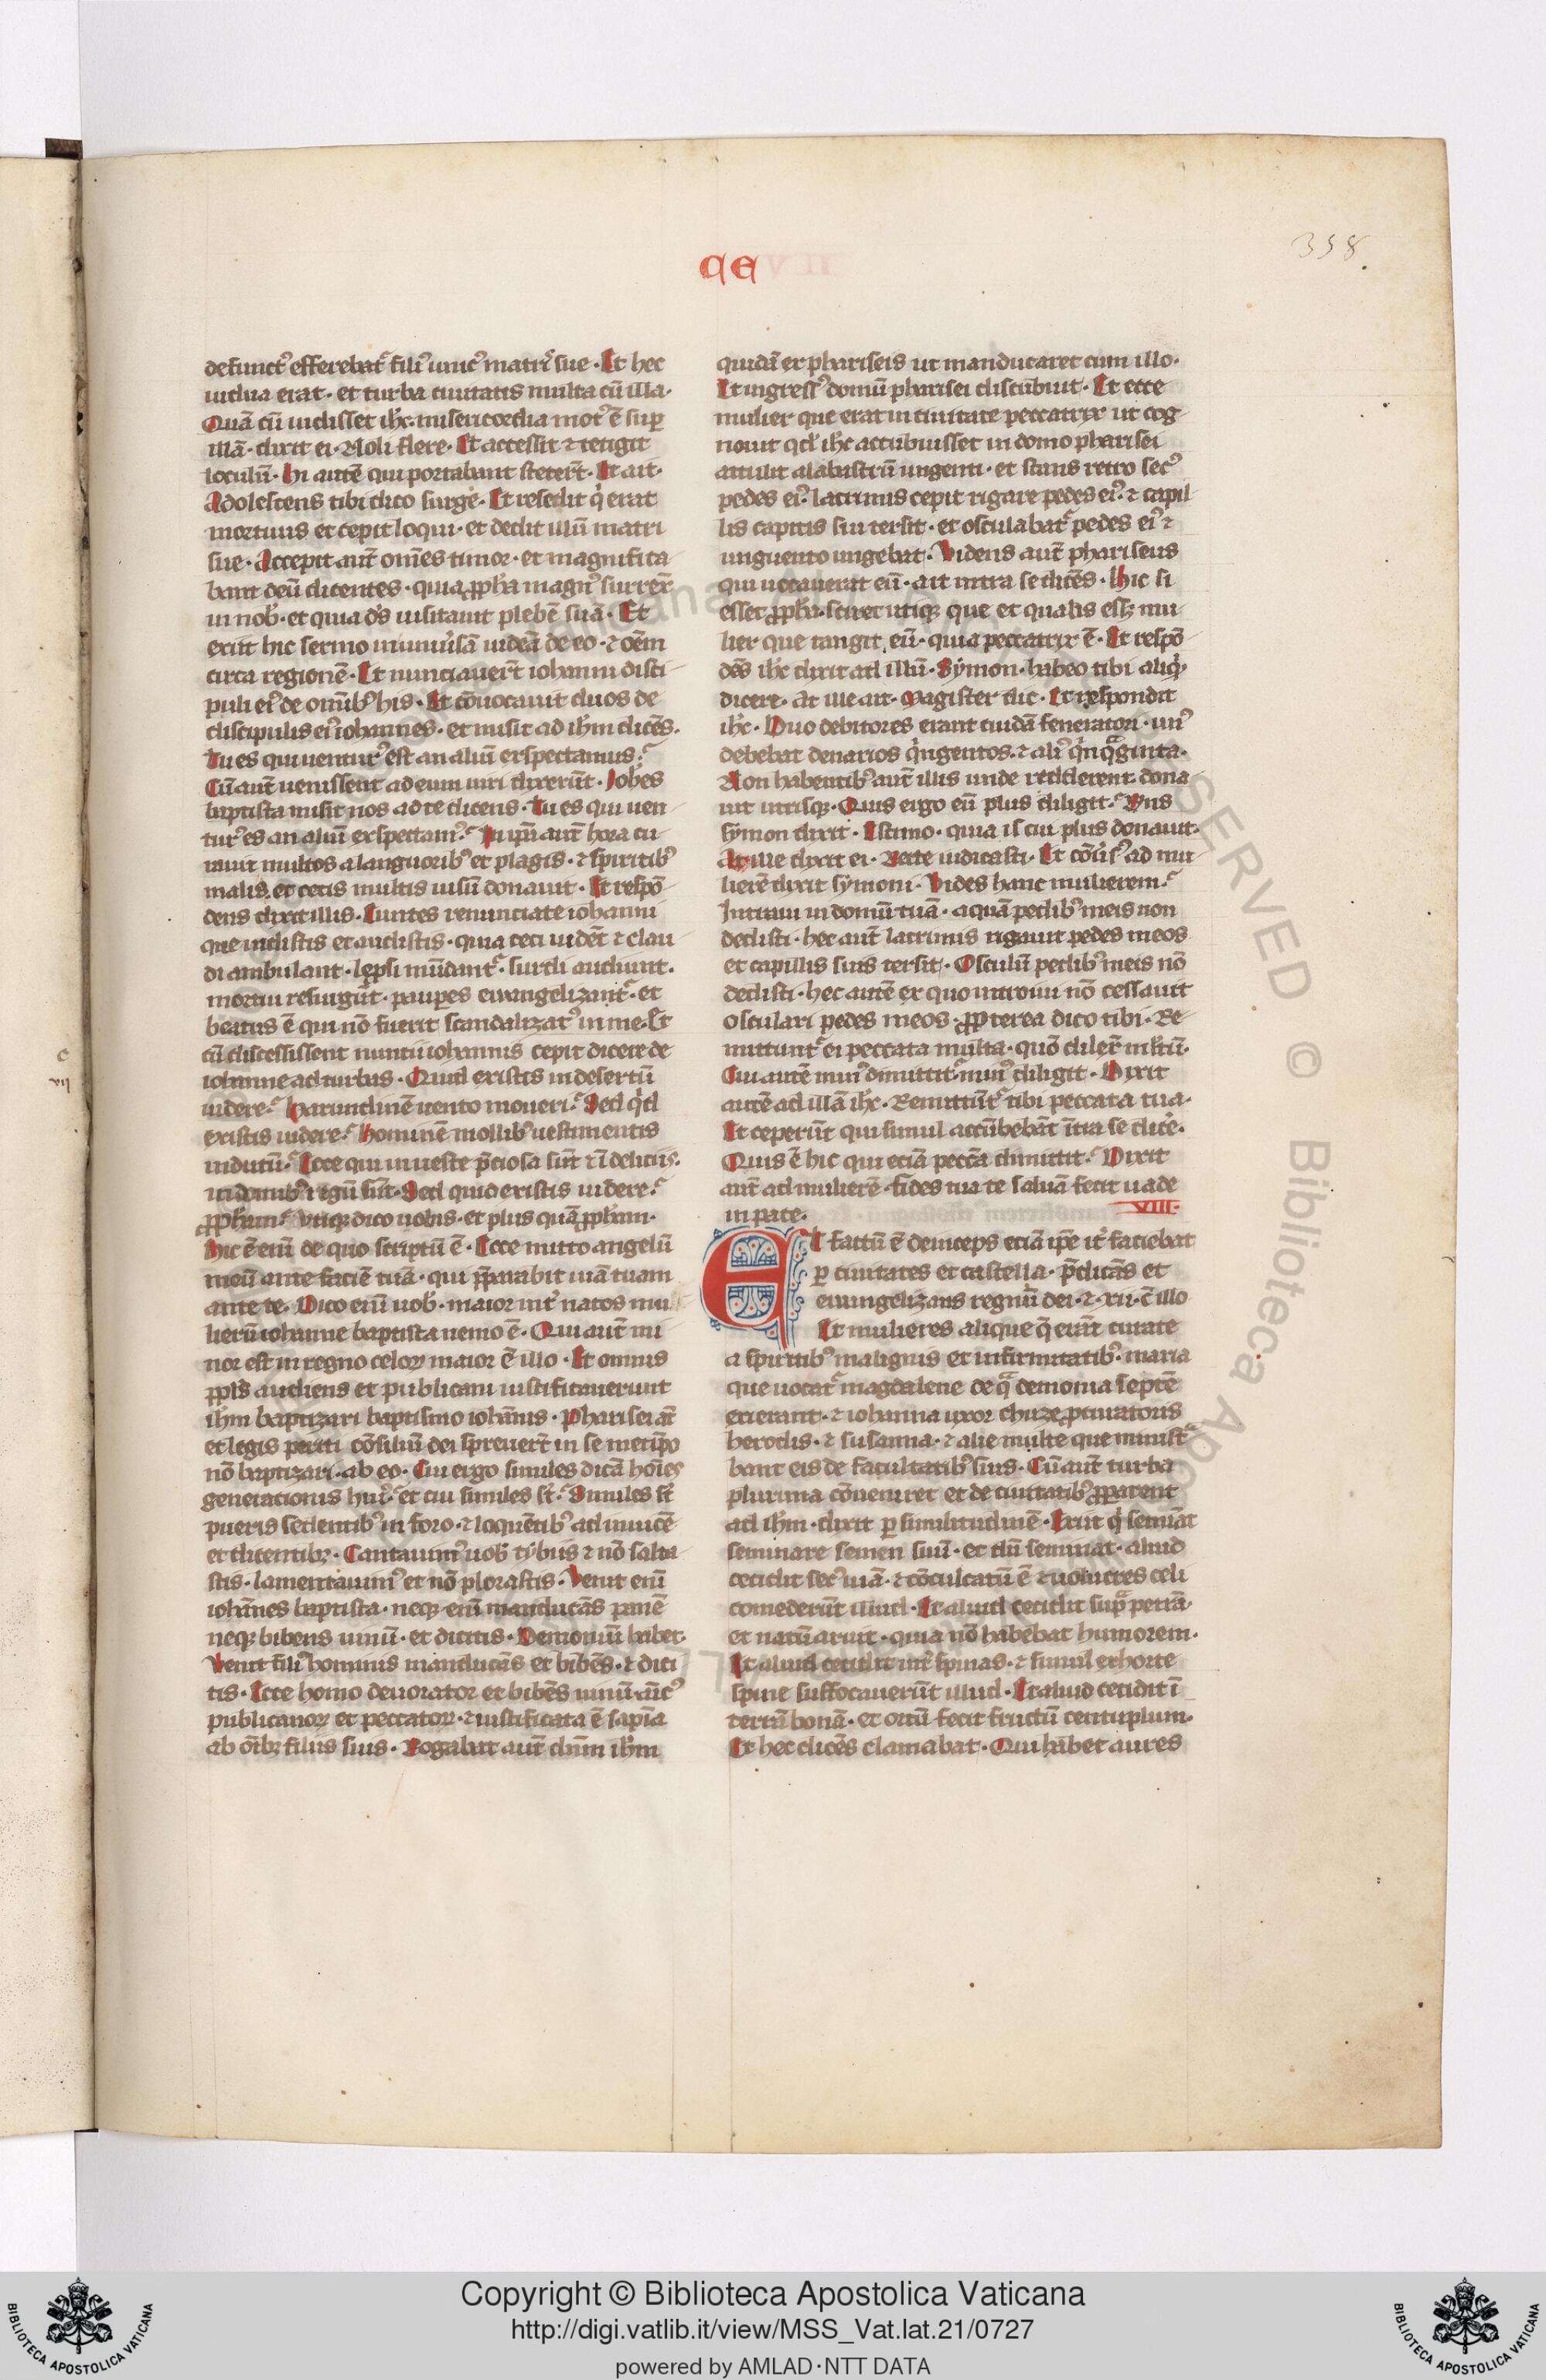 CE
358.
defunct᾿ efferebat᷑ fili᾿ unic᾿ matri᷑ sue · Et hec
uidua erat · et turba ciuitatis multa cū illa ·
Quā cū uidisset ihc̄ · misericordia mot᾿ ē sup̄
illā · dixit ei · Noli flere · Et accessit ⁊ tetigit
loculū · Hi autē qui portabant steter̄t · Et ait ·
Adolescens tibi dico surge · Et resedit q̇ erat
mortuus et cepit loqui · et dedit illū matri
sue · Accepit aut̄ om̄es timor · et magnifica
bant deū dicentes · quia ꝓph̄a magn᾿ surrex̄
in nob̄ · et quia ds̄ uisitauit plebē suā · Et
exiit hic sermo in uniu᾿sā iudeā de eo · ⁊ oēm
circa regionē · Et nunciauer̄t iohanni disci
puli ei᾿ de omīb᾿ his · Et cōuocauit duos de
discipulis ei᾿ iohannes · et misit ad ihm̄ dicēs ·
Tu es qui uentur᾿ est an aliū exspectamus ·
Cū aut̄ uenissent ad eum uiri dixerūt · Joh̄es
baptista misit nos ad te dicens · Tu es qui uen
tur᾿ es an aliū exspectam᾿ · In ip̄a aut̄ hora cu
rauit multos a languorib᾿ et plagis · ⁊ spiritib᾿
malis · et cecis multis uisū donauit · Et respō
dens dixit illis · Euntes renunciate iohanni
que uidistis et audistis · quia ceci uidēt ⁊ clau
di ambulant · lepsi mūdant᷑ · surdi audiunt ·
mortui resurgūt · paup̄es ewangelizant᷑ · et
beatus ē qui nō fuerit scandalizat᾿ in me · Et
c
xii
cū discessissent nuntii iohannis cepit dicere de
iohanne ad turbas · Quid existis in desertū
uidere · Harundinē uento moueri · Sed q̇d
existis uidere · Hominē mollib᾿ uestimentis
indutū · Ecce qui in ueste p̄ciosa sūt ⁊ ī deliciis ·
in domib᾿ regū sūt · Sed quid existis uidere ·
ꝓph̄am · Utiqꝫ dico uobis · et plus quā ꝓph̄am ·
Hic ē enī de quo scriptū ē · Ecce mitto angelū
meū ante faciē tuā · qui p̄parabit uiā tuam
ante te · Dico enī uob̄ · maior int᾿ natos mu
lierū iohanne baptista nemo ē · Qui aut̄ mi
nor est in regno celoꝝ maior ē illo · Et omnis
ppl̄s audiens et publicani iustificauerunt
ihm̄ baptizari baptismo iohānis · Pharisei at̄
et legis periti cōsiliū dei spreuer̄t in se metip̄o
nō baptizari · ab eo · Cui ergo similes dicā hoīes
generationis hui᾿ · et cui similes st̄ · Similes st̄
pueris sedentib᾿ in foro · ⁊ loquētib᾿ ad inuicē
et dicentibꝫ · Cantauim᾿ uob̄ tybiis ⁊ nō salta
stis · lamentauim᾿ et nō plorastis · Venit enī
iohānes baptista · neqꝫ enī manducās panē
neqꝫ bibens uinū · et dicitis · Demoniū habet ·
Venit fili᾿ hominis manducās et bibēs · ⁊ dici
tis · Ecce homo deuorator et bibēs uinū · aīc᾿
publicanoꝝ et peccatoꝝ · ⁊ iustificata ē sapīa
ab oībꝫ filiis suis · Rogabat aut̄ dn̄m ihm̄
quidā ex phariseis ut manducaret cum illo ·
Et ingress᾿ domū pharisei discubuit · Et ecce
mulier que erat in ciuitate peccatrix ut cog
nouit qd̄ ihc̄ accubuisset in domo pharisei
attulit alabastrū ungenti · et stans retro sec᾿
pedes ei᾿ · lacrimis cepit rigare pedes ei᾿ · ⁊ capil
lis capitis sui tersit · et osculabat᷑ pedes ei᾿ ⁊
unguento ungebat · Videns aut̄ phariseus
qui uocauerat eū · ait intra se dicēs · Hic si
esset ꝓph̄a · sciret utiqꝫ que et qualis eēt mu
lier que tangit eū · quia peccatrix ē · Et respō
dēs ihc̄ dixit ad illū · Symon · habeo tibi aliq̇ ·
dicere · At ille ait · Magister dic · Et respondit
ihc̄ · Duo debitores erant cuidā feneratori · un᾿
debebat denarios q̇ngentos · ⁊ ali᾿ q̇nq̄ginta ·
Non habentib᾿ aut̄ illis unde redderent · dona
uit utrisqꝫ · Quis ergo eū plus diligit · Rn̄s
symon dixit · Estimo · quia is cui plus donauit ·
At ille dixit ei · Recte iudicasti · Et cōu᾿s᾿ ad mu
lierē dixit symoni · Vides hanc mulierem ·
Intraui in domū tuā · aquā pedib᾿ meis non
dedisti · hec aut̄ lacrimis rigauit pedes meos
et capillis suis tersit · Osculū pedib᾿ meis nō
dedisti · hec autē ex quo introiui nō cessauit
osculari pedes meos · ꝓpterea dico tibi · Re
mittunt᷑ ei peccata multa · quō dilex̄ m̄ltū ·
Cui autē min᾿ dimittit᷑ · min᾿ diligit · Dixit
autē ad illā ihc̄ · Remittūt᷑ tibi peccata tua ·
Et ceperūt qui simul accūbebāt īt̄ra se dicē ·
Quis ē hic qui eciā pecc̄a dimittit · Dixit
aut̄ ad mulierē · fides tua te saluā fecit uade
in pace ·
VIII ·
Et factū ē deinceps eciā ip̄e it᾿ faciebat
ꝑ ciuitates et castella · p̄dicās et
ewangelizans regnū dei · ⁊ · xii · c̄ illo
Et mulieres alique q̄ erāt curate
a spiritib᾿ malignis et infirmitatib᾿ · maria
que uocat᷑ magdalene de q̄ demonia septē
exierant · ⁊ iohanna uxor chuze ꝓcuratoris
herodis · ⁊ susanna · ⁊ alie multe que minist᷑
bant eis de facultatib᾿ suis · Cū aut̄ turba
plurima cōueniret et de ciuitatib᾿ ꝓparent
ad ihm̄ · dixit ꝑ similitudinē · Exiit q̇ semīat
seminare semen suū · et dū seminat · aliud
cecidit sec᾿ uiā · ⁊ cōculcatū ē ⁊ uolucres celi
comederūt illud · Et aliud cecidit sup̄ petrā ·
et natū aruit · quia nō habebat humorem ·
Et aliud cecidit int᾿ spinas · ⁊ simul exhorte
spine suffocauerūt illud · Et aliud cecidit ī
terrā bonā · et ortū fecit fructū centuplum ·
Et hec dicēs clamabat · Qui habet aures
Copyright © Biblioteca Apostolica Vaticana
http://digi.vatlib.it/view/MSS_Vat.lat.21/0727
powered by AMLAD · NTT DATA
BIBLIOTECA APOSTOLICA VATICANA
BIBLIOTECA APOSTOLICA VATICANA